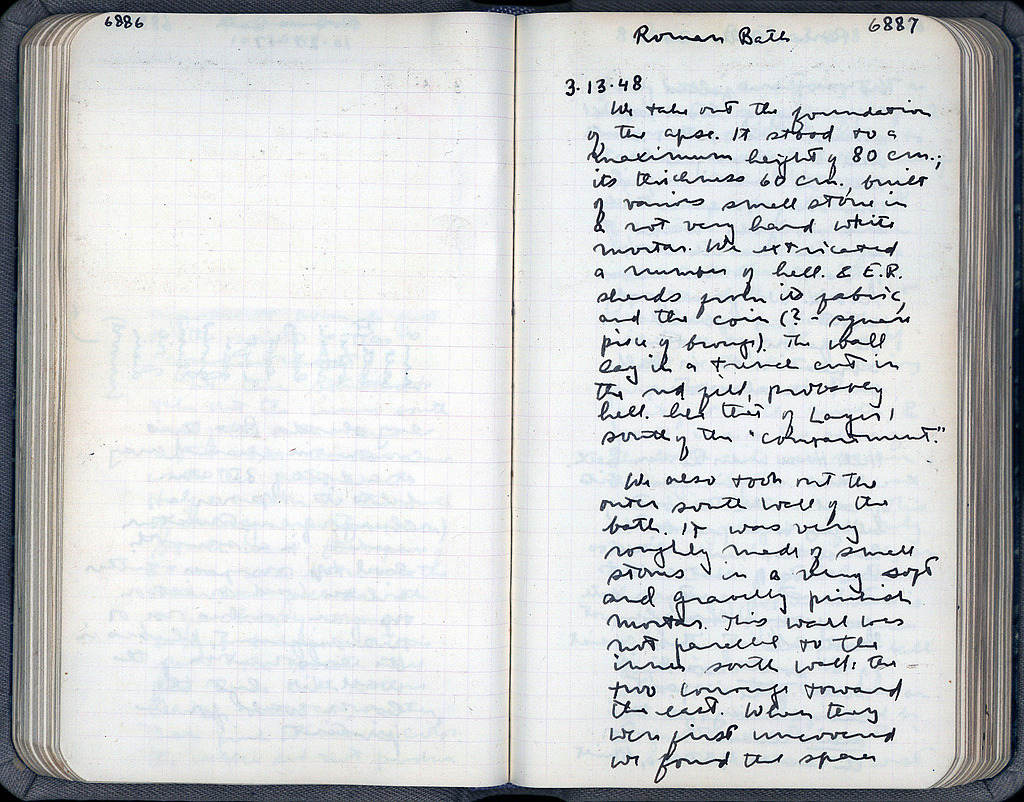 6886
6887
Roman Bath
3·13·48
We take out the foundation
of the apse. It stood to a
maximum height of 80 cm.;
its thickness 60 cm., built
of various small stone in
a not very hard white
mortar. We extricated
a number of hell. & E.R.
sherds from its fabric,
and the coin (? - square
piece of bronze). The wall
lay in a trench cut in
the red fill, probably
hell. like that of Layer 1
south of the "compartment."
We also took out the
outer south wall of the
bath. It was very
roughly made of small
stones in a very soft
and gravelly pinkish
mortar. This wall was
not parallel to the
inner south wall: the
two converge toward
the east. When they
were first uncovered
we found the space